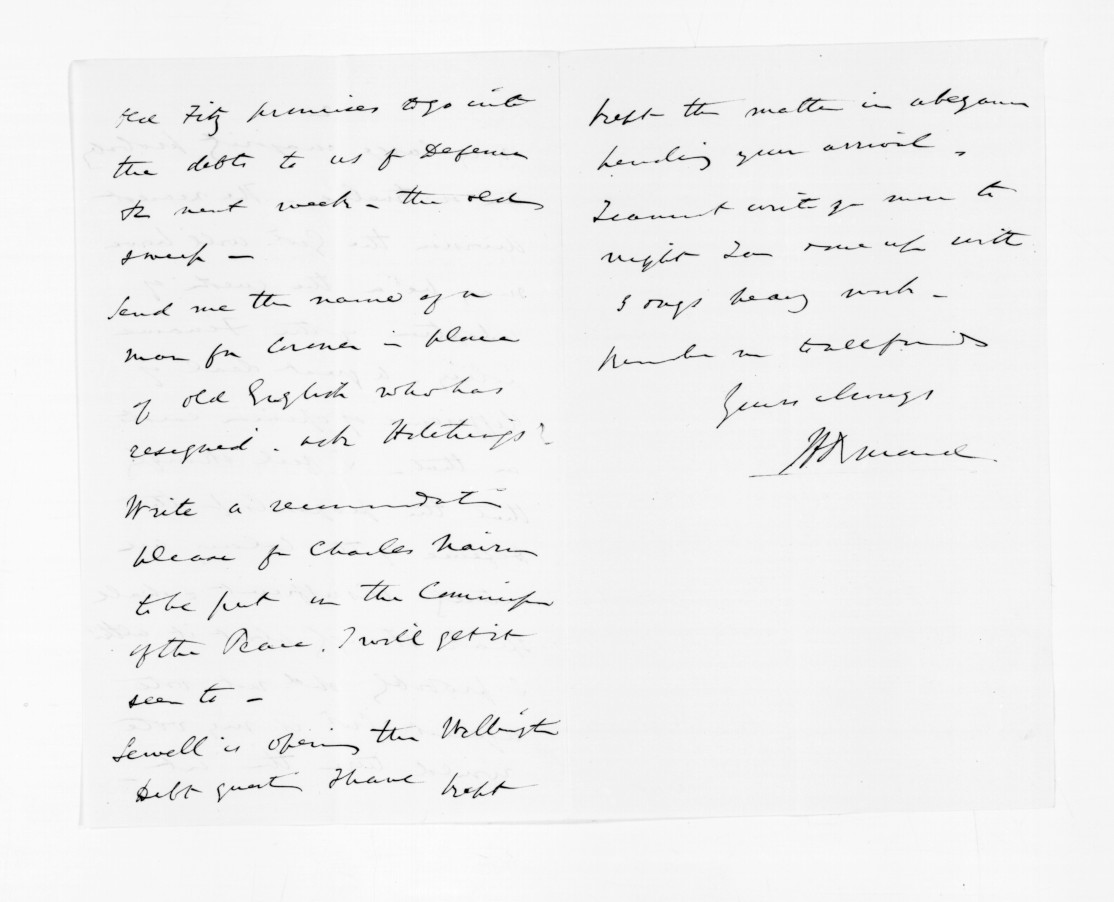 Old Fitz promises to go into
the debts to us for Defence
&c next week - the old
sweep -
Send me the name of a
man for Coroner in place
of old English who has
resigned. ask Hitchings?
Write a recommendation
please for Charles Nairn
to be put in the Commission
of the Peace. I will get it
seen to -
Sewell is opening the Wellington
Debt question I have kept
kept the matter in abeyance
pending your arrival.
I cannot write you more to
night I am done up with
3 days heavy work -
Remember me to all friends
Yours always